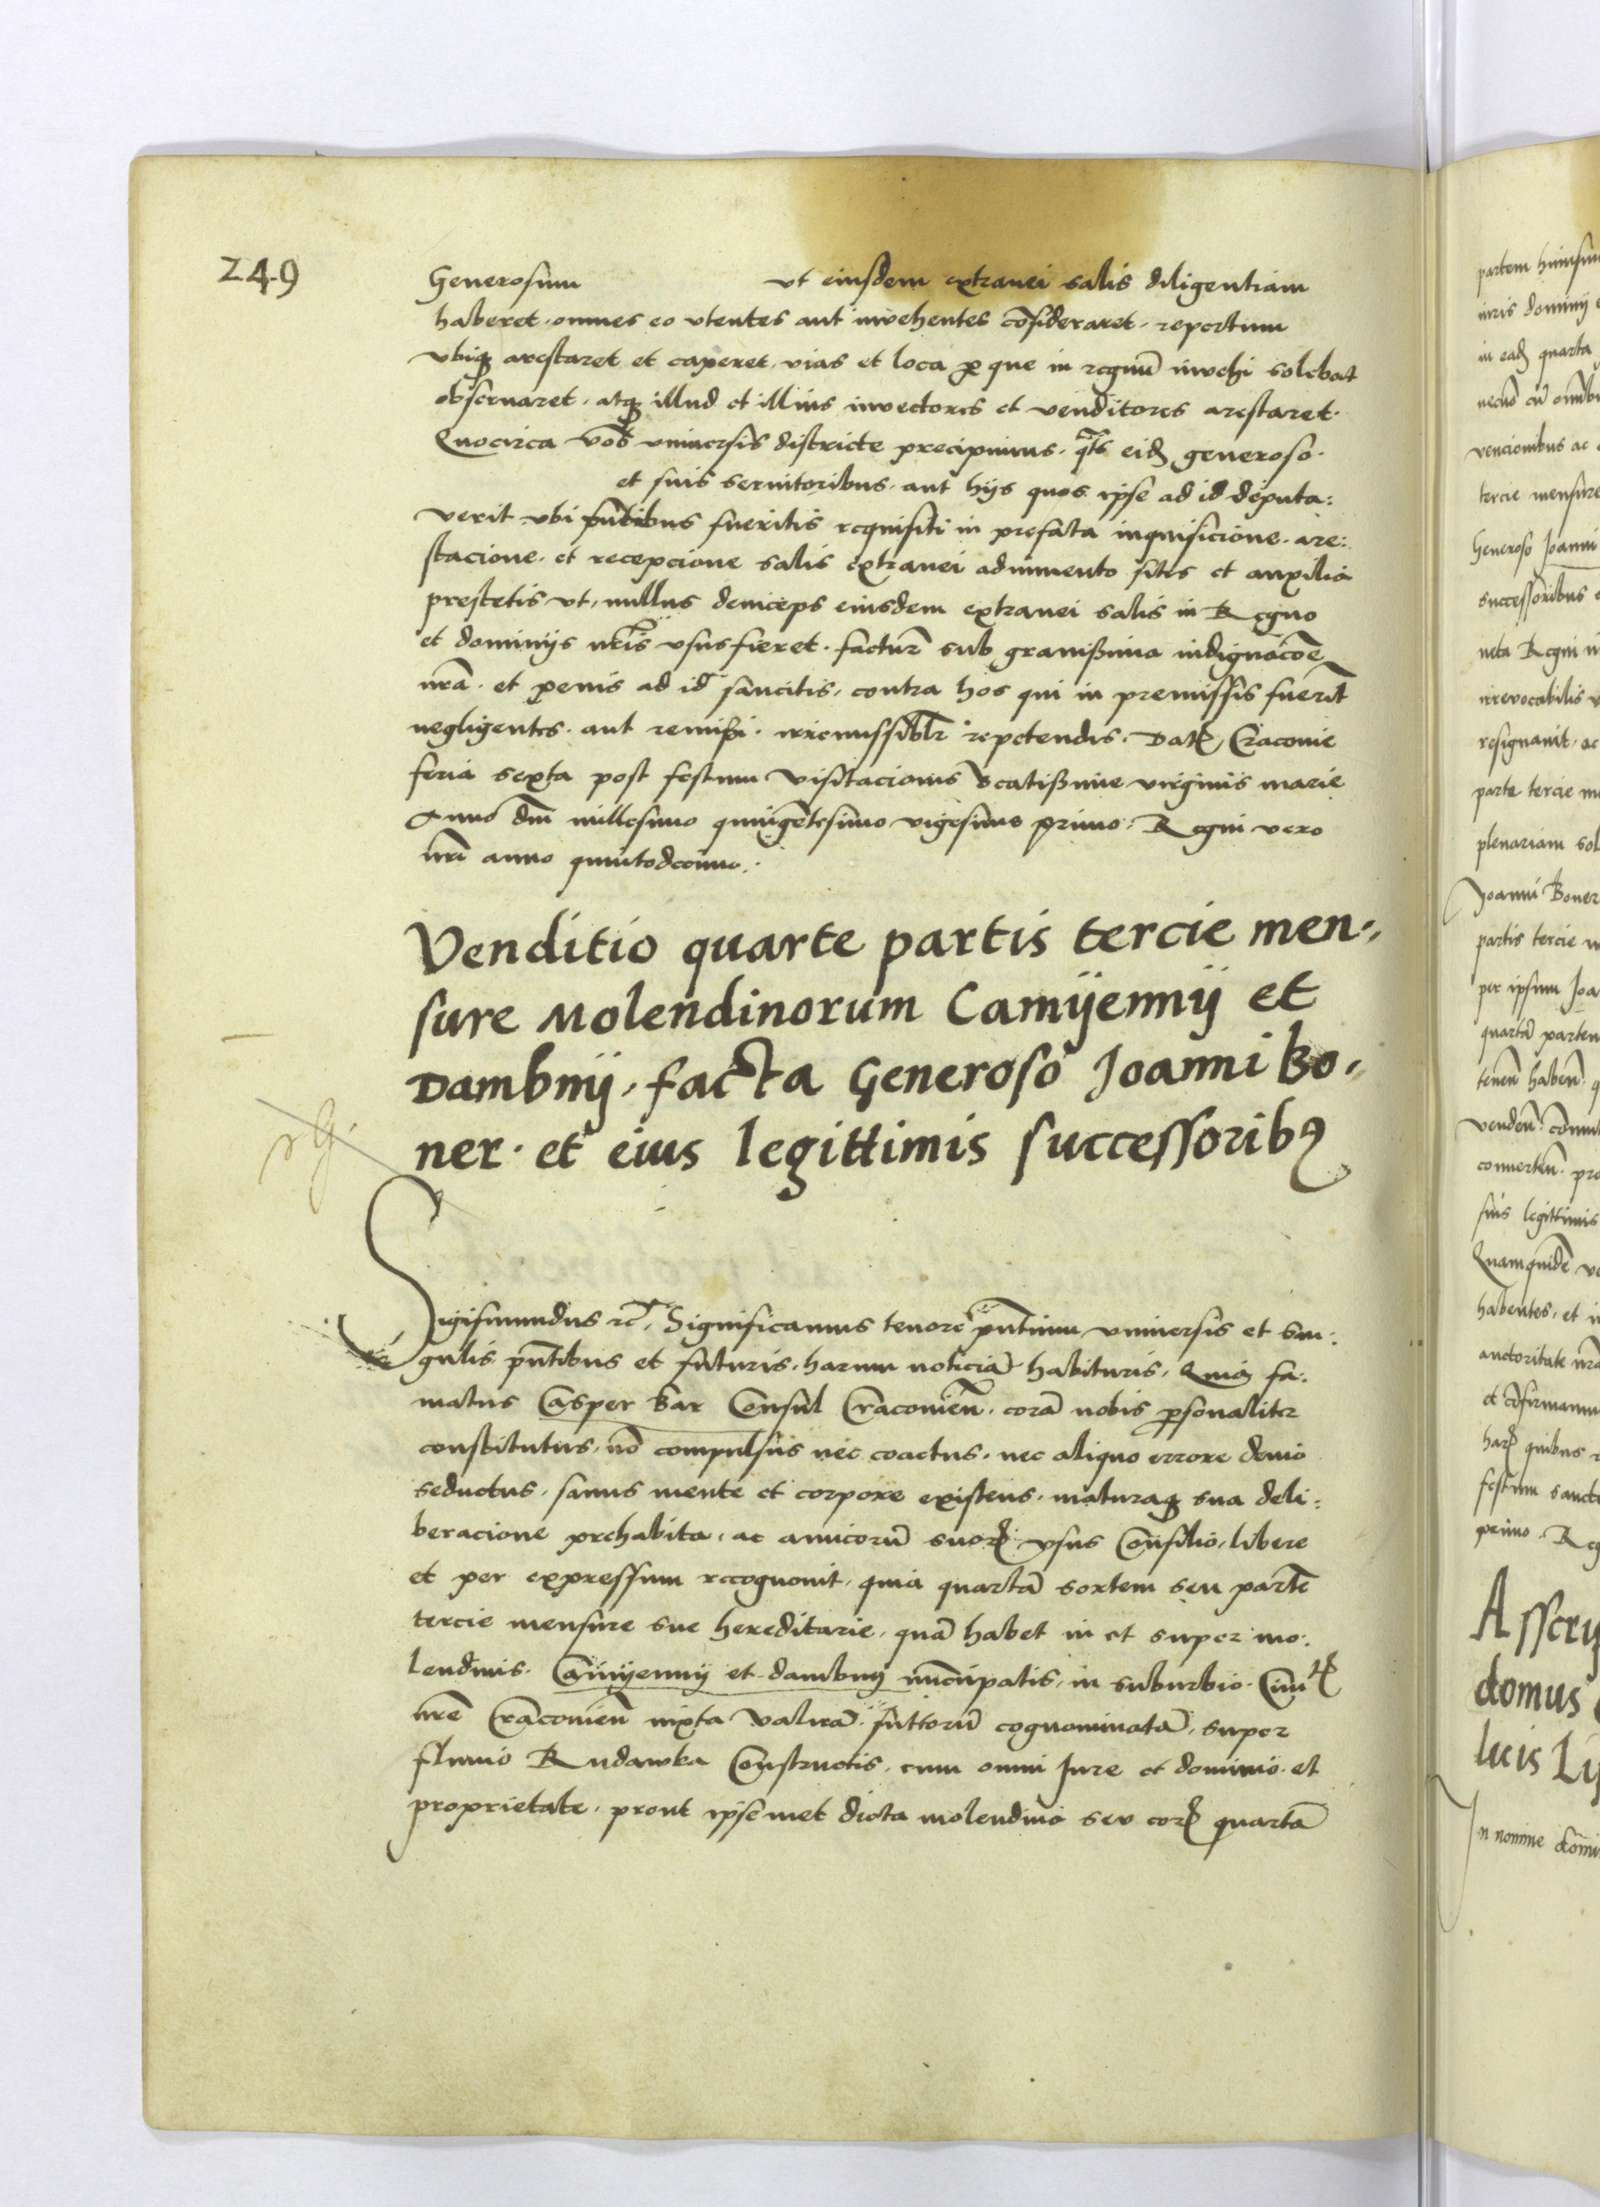 249
Generosum ut eiusdem extranei salis diligentiam
haberet. omnes eo utentes aut invehentes cōsideraret. repertum
vbiqȝ arestaret et caperet, vias et loca ꝑ que in regnū invehi solebat
obseruaret. atqȝ illud et illius invectores et venditores arestaret.
Quocirca vob universis districte precipimus. qts eidē generoso.
et suis seruitoribus. aut hijs quos ipse ad id deputa:
verit ubi pntibus fueritis requisiti in prefata inquisicione. are:
stacione. et recepcione salis extranei adiumento sitis et auxilia
prestetis ut, nullus deinceps eiusdem extranei salis in Regno
et dominijs nris usus fieret. facturi sub grauißima indignacōe
nrā. et penis ad id sancitis, contra hos qui in premissis fuerīt
negligentes. aut remißi. irremissiblr repetendis. Dat Cracouie
feria sexta post festum visitacionis Beatißime virginis marie
Anno dm millesimo quingētesimo vigesimo primo. Regni vero
nri anno quintodecimo.
Venditio quarte partis tercie men.,
sure Molendinorum Camÿennÿ et
Dambnÿ, facta Generoso Joanni Bo.,
ner. et eius legittimis successoribꝰ
Sigismundus rc, Significamus tenore pntium universis et sin:
gulis pntibus et futuris. harum noticiā habituris. Quia fa:
matus Casper Bar Consul Cracouien. corā nobis ꝑsonaliter
constitutus. nō compulsus nec coactus. nec aliquo errore deuio
seductus. sanus mente et corpore existens. maturaqȝ sua deli:
beracione prehabita. ac amicorū suoꝝ usus Consilio, libere
et per expressum recognouit, quia quartā sortem seu partē
tercie mensure sue hereditarie, quā habet in et super mo:
lendinis. Camÿennÿ et dambnÿ nūcupatis, in suburbio. Ciuit
nrē Cracouien iuxta valuā. suttorū cognominatā, super
fluuio Rudawka Constructis, cum omni Jure et dominio. et
proprietate. prout ipsemet dicta molendina seu eoꝝ quartā
partem
iuris dominij
in eadē quarta
vencionibus ac
tercie mensure
Generoso Joanni
successoribus
irrevocabilis
resignauit, ac
parte tercie
plenariam
Joanni Boner
partis tercie
per ipsum
quartā partem
suis legittimis
habentes, et
auctoritate
quibus
festum
primo.
domus
In nomine